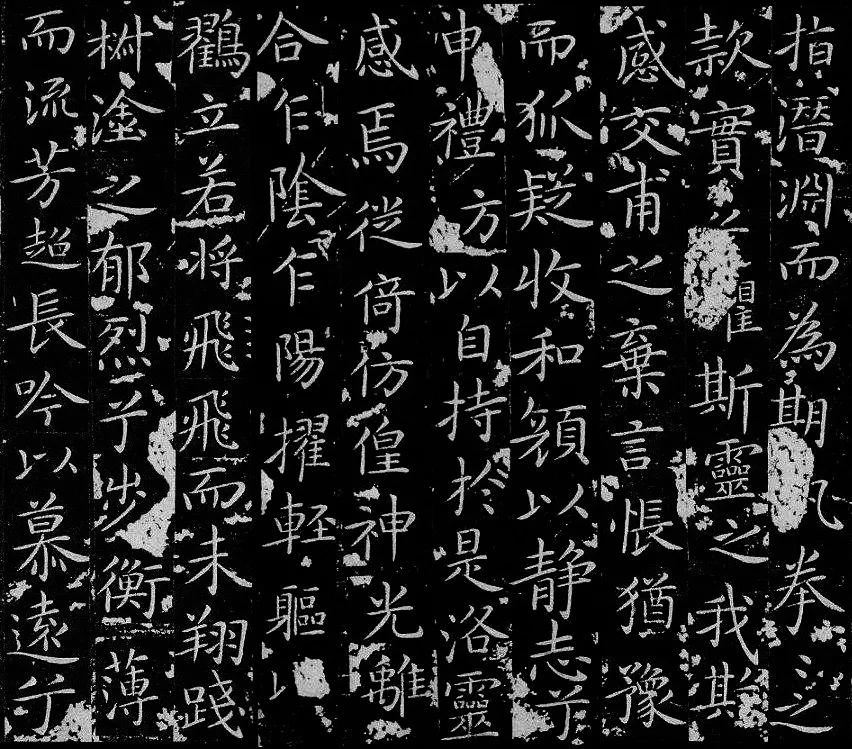 指潛淵而為期拳〻之
款實懼斯靈之我欺
感交甫之棄言悵猶豫
而狐疑收和顏以静志兮
申禮方以自持於是洛靈
感焉徙倚仿偟神光離
合乍陰乍陽擢輕軀以
鶴立若將飛飛而未翔踐
椒塗之郁烈兮步衡薄
而流芳超長吟以慕遠兮